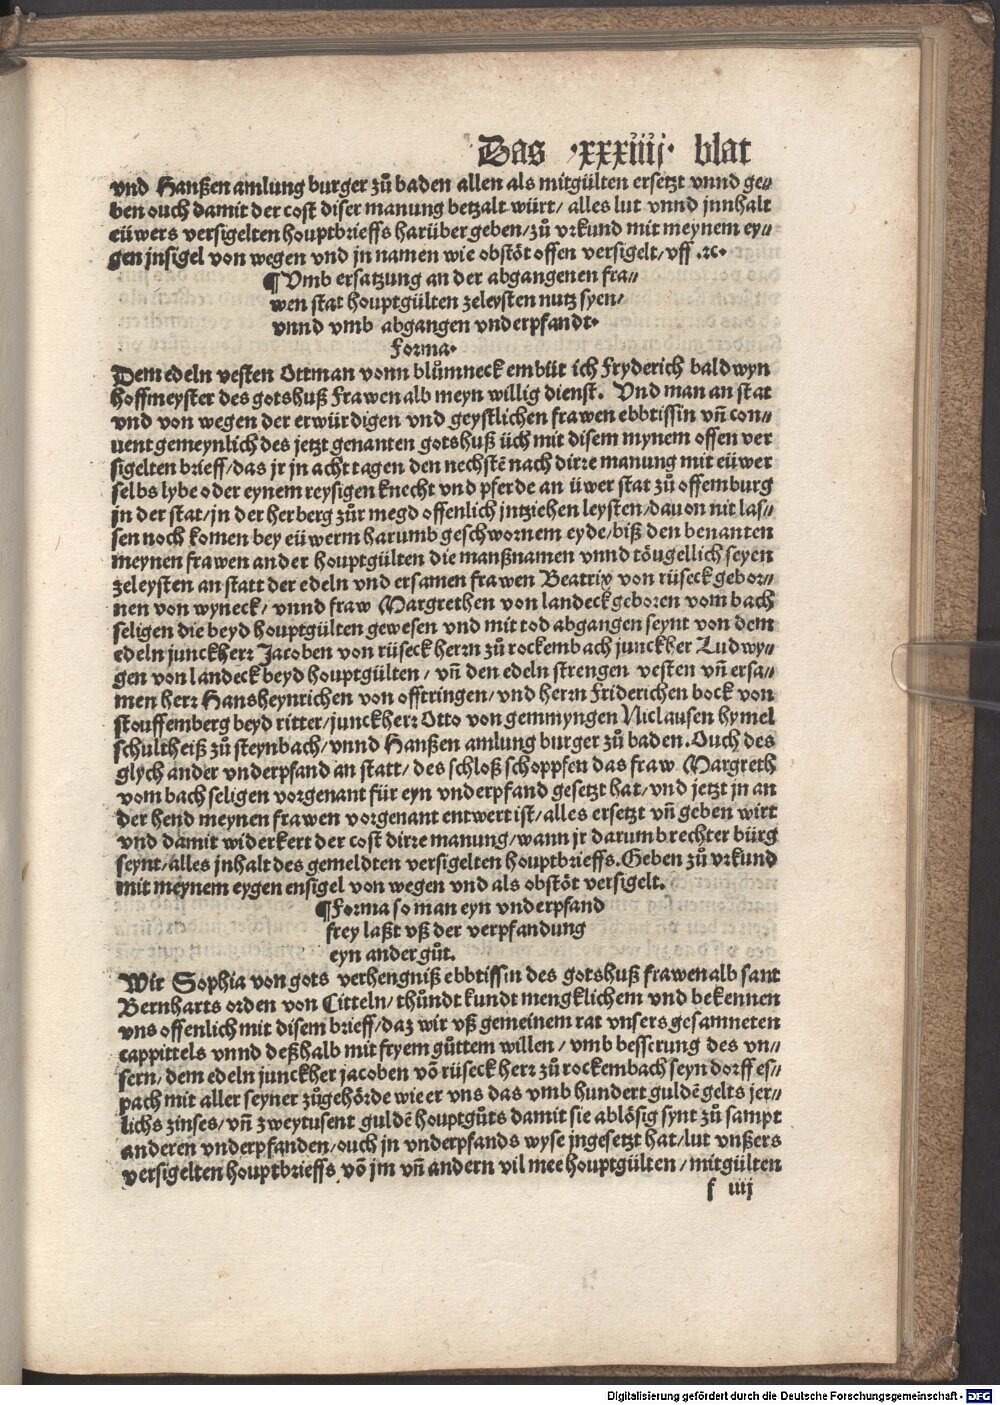 Das .xxxiiij. blat
vnd Hanßen amlung burger zů baden allen als mitgülten ersetzt vnnd ge⸗
ben ouch damit der cost diser manung betzalt würt/ alles lut vnnd jnnhalt
eüwers versigelten houptbrieffs harüber geben/zů vrkund mit meynem ey⸗
gen jnsigel von wegen vnd jn namen wie obstöt offen versigelt/vff .ꝛc.
¶Vmb ersatzung an der abgangenen fra⸗
wen stat houptgülten zeleysten nutz syen/
vnnd vmb abgangen vnderpfandt.
Forma.
Dem edeln vesten Ottman vonn blůmneck embüt ich Fryderich baldwyn
hoffmeyster des gotshuß Frawenalb meyn willig dienst. Vnd man an stat
vnd von wegen der erwürdigen vnd geystlichen frawen ebbtissin vñ con⸗
uent gemeynlich des jetzt genanten gotshuß üch mit disem mynem offen ver
sigelten brieff/das jr jn acht tagen den nechstē nach dirre manung mit eüwer
selbs lybe oder eynem reysigen knecht vnd pferde an üwer stat zů offemburg
jn der stat/jn der herberg zůr megd offenlich jntziehen leysten/dauon nit las⸗
sen noch komen bey eüwerm harumb geschwornem eyde/biß den benanten
meynen frawen ander houptgülten die manßnamen vnnd töugellich seyen
zeleysten an statt der edeln vnd ersamen frawen Beatrix von rüseck gebor⸗
nen von wyneck/ vnnd fraw Margrethen von landeck geboren vom bach
seligen die beyd houptgülten gewesen vnd mit tod abgangen seynt von dem
edeln junckherr Jacoben von rüseck herrn zů rockembach junckher Ludwy⸗
gen von landeck beyd houptgülten/ vñ den edeln strengen vesten vñ ersa⸗
men herr Hansheynrichen von offtringen/vnd herrn Friderichen bock von
stouffemberg beyd ritter/junckherr Otto von gemmyngen Niclausen hymel
schultheiß zů steynbach/vnnd Hanßen amlung burger zů baden. Ouch des
glych ander vnderpfand an statt/ des schloß schoppfen das fraw Margreth
vom bach seligen vorgenant für eyn vnderpfand gesetzt hat/vnd jetzt jn an
der hend meynen frawen vorgenant entwert ist/alles ersetzt vñ geben wirt
vnd damit widerkert der cost dirre manung/wann jr darumb rechter bürg
seynt/alles jnhalt des gemeldten versigelten houptbrieffs. Geben zů vrkund
mit meynem eygen ensigel von wegen vnd als obstöt versigelt.
¶Forma so man eyn vnderpfand
frey laßt vß der verpfandung
eyn ander gůt.
Wir Sophia von gots verhengniß ebbtissin des gotshuß frawenalb sant
Bernharts orden von Citteln/thůndt kundt mengklichem vnd bekennen
vns offenlich mit disem brieff/daz wir vß gemeinem rat vnsers gesamneten
cappittels vnnd deßhalb mit fryem gůttem willen/ vmb besserung des vn⸗
sern/dem edeln junckher jacoben vō rüseck herr zů rockembach seyn dorff es⸗
pach mit aller seyner zůgehörde wie er vns das vmb hundert guldē gelts jer⸗
lichs zinses/vñ zweytusent guldē houptgůts damit sie ablösig synt zů sampt
anderen vnderpfanden/ouch jn vnderpfands wyse jngesetzt hat/lut vnßers
versigelten houptbrieffs vō jm vñ andern vil mee houptgülten/mitgülten
f iiij
Digitalisierung gefördert durch die Deutsche Forschungsgemeinschaft - DFG